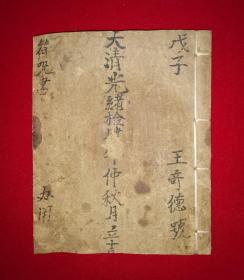 戊子
王奇德號
大清光緒拾肆年仲秋月立
符咒書